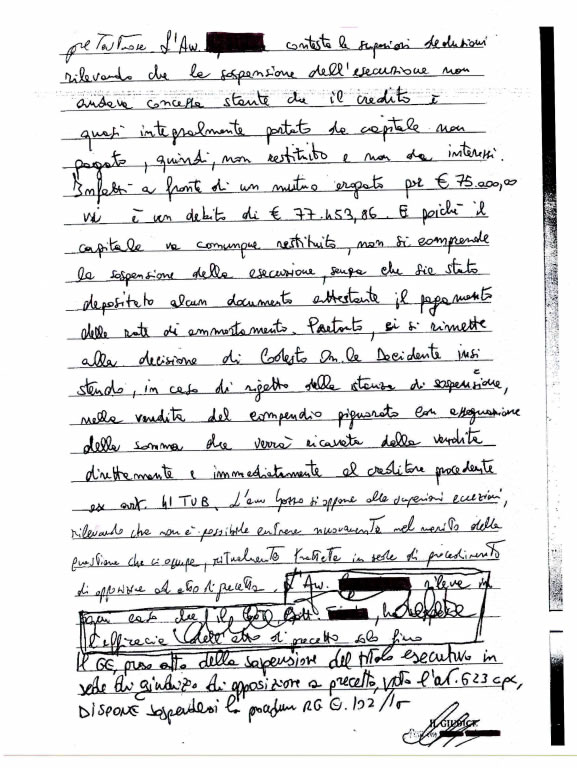 pretartuose. L'Av. contesta le superiori deduzioni
rilevando che la sospensione dell'esecuzione non
andava concessa stante che il credito è
quasi integralmente portato da capitale non
pagato, quindi, non restituito e non da interessi.
Infatti a fronte di un mutuo erogato per € 75.000,00
vi è un debito di € 77.453,86. E poichè il
capitale va comunque restituito, non si comprende
la sospensione della esecuzione, senza che sia stato
depositato alcun documento attestante il pagamento
delle rate di ammortamento. Pertanto, si si rimette
alla decisione di Codesto On.le Decidente insi
stendo, in caso di rigetto della istanza di sospensione,
nella vendita del compendio pignorato con assegnazione
della somma che verrà ricavata dalla vendita
direttamente e immediatamente al creditore procedente
ex art. 41 TUB. L'avv si oppone alle superiori eccezioni,
rilevando che non è possibile entrare nuovamente nel merito della
questione che ci occupa, ritualmente trattata in sede di procedimento
di opposizione ad atto di precetto. L'Av. rileva in
ogni caso che il Dott.
l'efficacia dell'atto di precetto solo fino
Il GE, preso atto della sospensione del titolo esecutivo in
sede di giudizio di opposizione a precetto, visto l'art. 623 cpc,
DISPONE sospendersi la procedura RG E. 192/10
IL GIUDICE